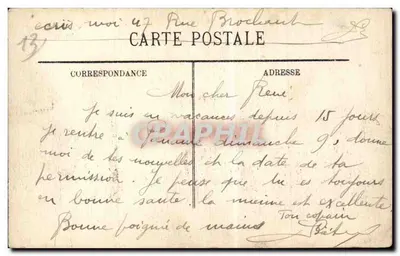 écris moi 47 Rue Brochant
13
CARTE POSTALE
CORRESPONDANCE
ADRESSE
Mon cher René.
Je suis en vacances depuis 15 jours
je rentre dimanche 9, donne
moi de tes nouvelles et la date de ta
permission. Je pense que tu es toujours
en bonne santé la mienne est excellente
Ton copain
Bonne poignée de mains